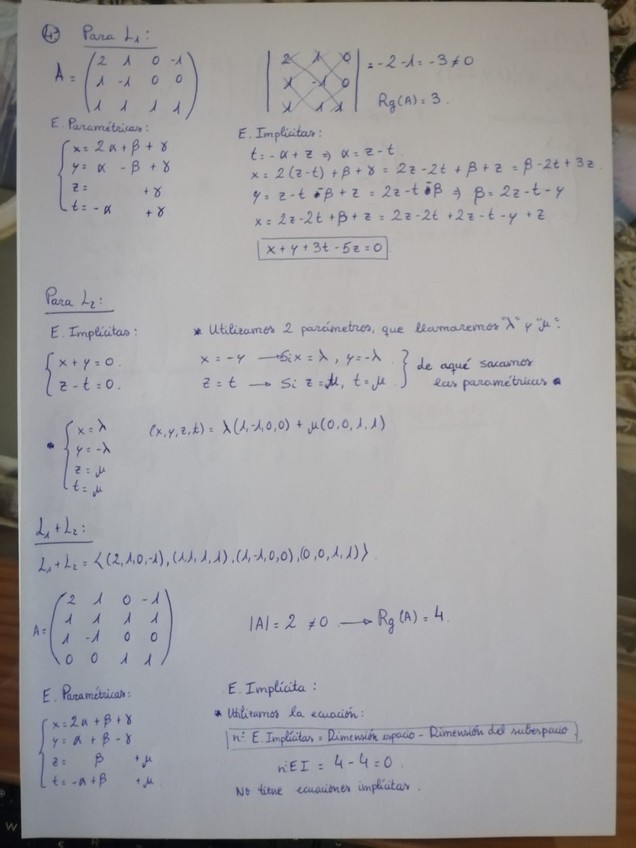 43 Para L₁:
A = ( 2 1 0 -1
1 -1 0 0
1 1 1 1 )
| 2 1 0
1 -1 0
1 1 1 | = -2 - 1 = -3 ≠ 0
Rg(A) = 3.
E. Paramétricas:
{ x = 2α + β + γ
y = α - β + γ
z = + γ
t = -α + γ
E. Implícitas:
t = -α + z ⇒ α = z - t.
x = 2(z-t) + β + γ = 2z - 2t + β + z = β - 2t + 3z.
y = z - t - β + z = 2z - t - β ⇒ β = 2z - t - y
x = 2z - 2t + β + z = 2z - 2t + 2z - t - y + z
x + y + 3t - 5z = 0
Para L₂:
E. Implícitas:
{ x + y = 0.
z - t = 0.
* Utilizamos 2 parámetros, que llamaremos "λ" y "μ":
x = -y → Si x = λ, y = -λ
z = t → Si z = μ, t = μ
} de aquí sacamos
las paramétricas
{ x = λ
y = -λ
z = μ
t = μ
(x, y, z, t) = λ(1, -1, 0, 0) + μ(0, 0, 1, 1)
L₁ + L₂:
L₁ + L₂ = ⟨(2, 1, 0, -1), (1 1, 1, 1), (1, -1, 0, 0), (0, 0, 1, 1)⟩
A = ( 2 1 0 -1
1 1 1 1
1 -1 0 0
0 0 1 1 )
|A| = 2 ≠ 0 → Rg(A) = 4.
E. Paramétricas:
{ x = 2α + β + γ
y = α + β - γ
z = β + μ
t = -α + β + μ
E. Implícita:
* Utilizamos la ecuación:
nº E. Implícitas = Dimensión espacio - Dimensión del subespacio
nº EI = 4 - 4 = 0.
No tiene ecuaciones implícitas.